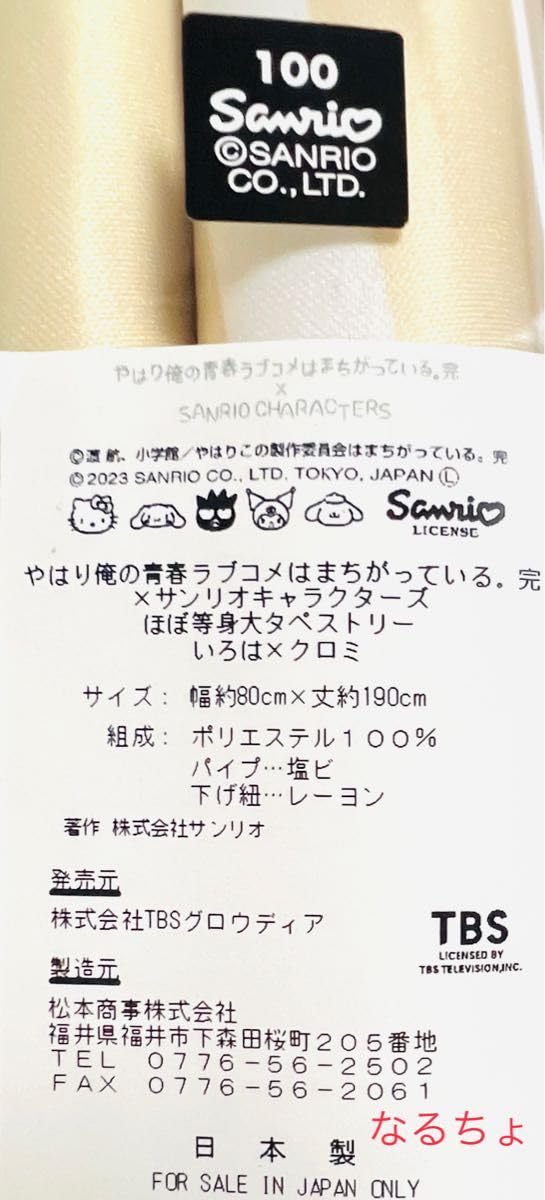 100
Sanrio
©SANRIO
CO.,LTD.
やはり俺の青春ラブコメはまちがっている。完
×
SANRIO CHARACTERS
©渡 航、小学館／やはりこの製作委員会はまちがっている。完
©2023 SANRIO CO., LTD. TOKYO, JAPAN Ⓛ
Sanrio
LICENSE
やはり俺の青春ラブコメはまちがっている。完
×サンリオキャラクターズ
ほぼ等身大タペストリー
いろは×クロミ
サイズ： 幅約80cm×丈約190cm
組成： ポリエステル１００％
パイプ…塩ビ
下げ紐…レーヨン
著作 株式会社サンリオ
発売元
株式会社TBSグロウディア
TBS
LICENSED BY
TBS TELEVISION,INC.
製造元
松本商事株式会社
福井県福井市下森田桜町２０５番地
ＴＥＬ ０７７６－５６－２５０２
ＦＡＸ ０７７６－５６－２０６１
なるちょ
日 本 製
FOR SALE IN JAPAN ONLY